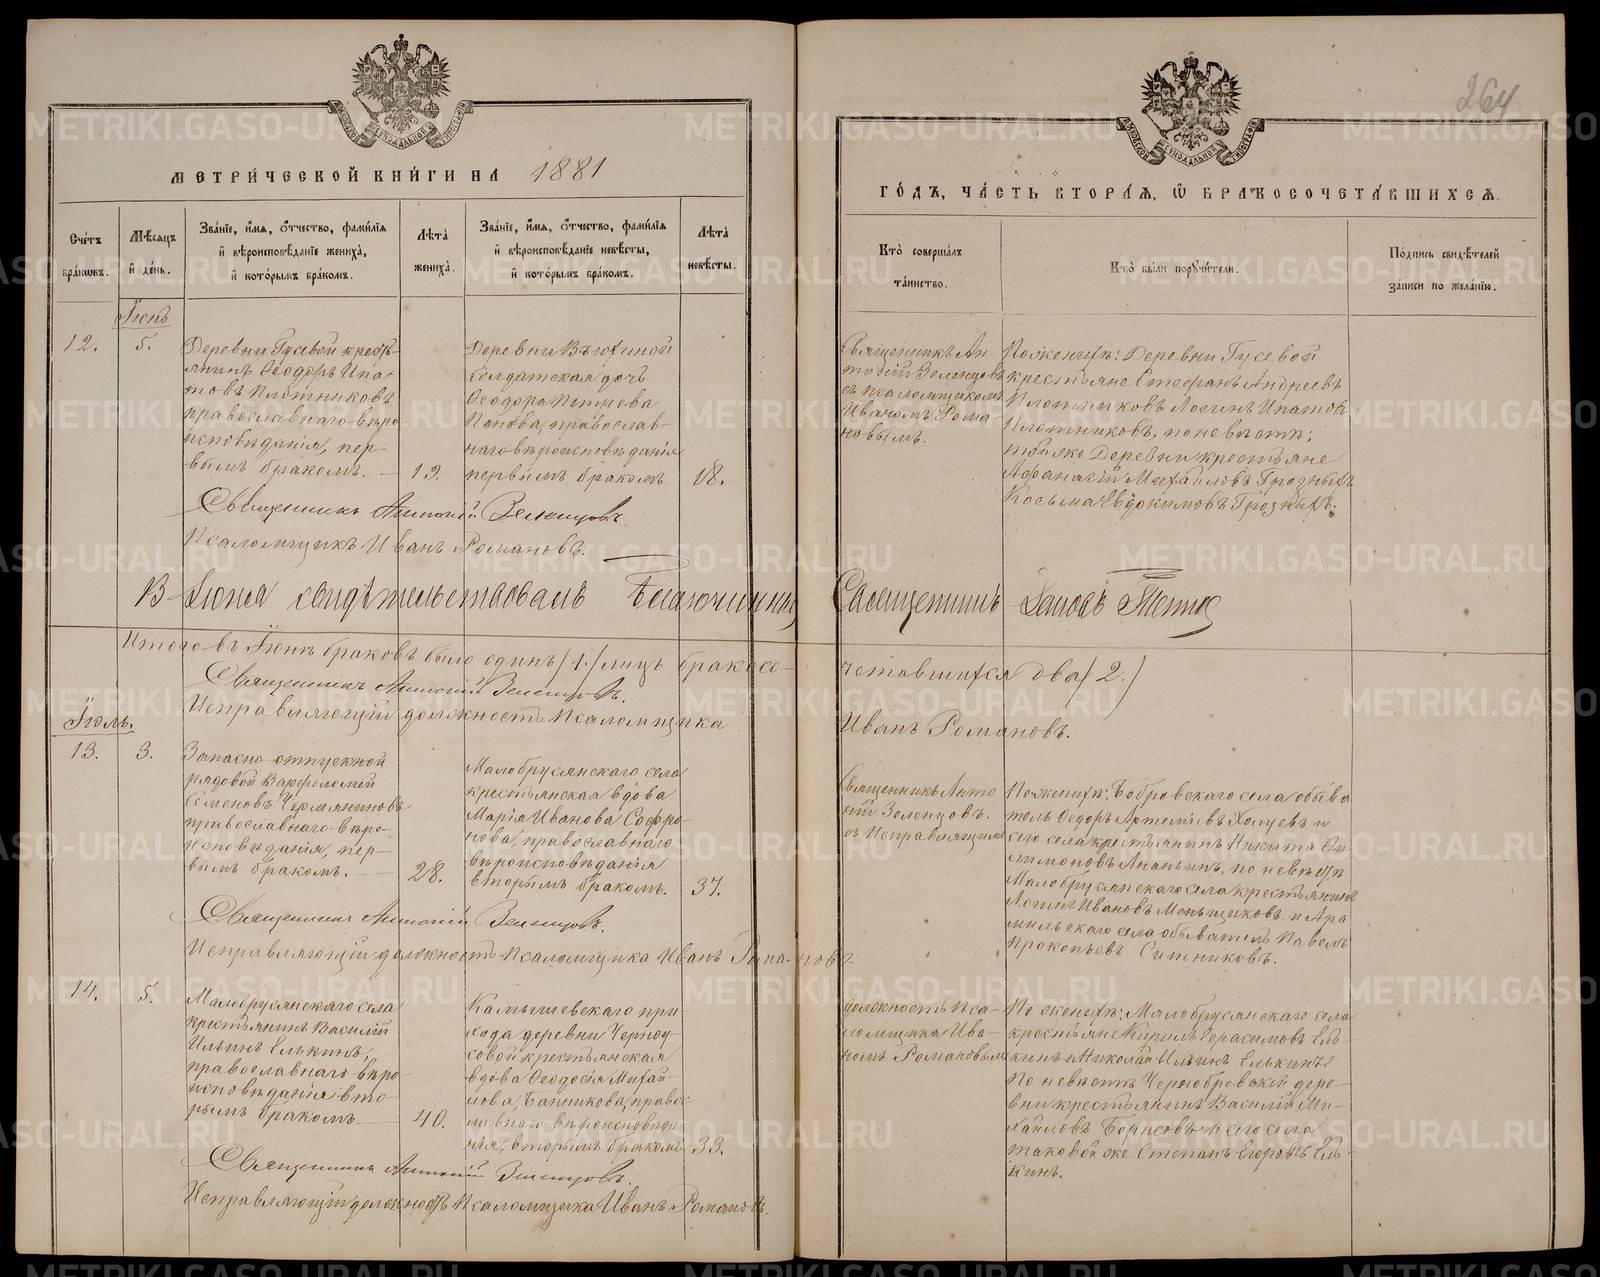 264
МЕТРИЧЕСКОЙ КНИГИ НА 1881
ГОДЪ, ЧАСТЬ ВТОРАЯ, Ѡ БРАКОСОЧЕТАВШИХСЯ.
Счетъ браковъ.
Мѣсяцъ и день.
Званіе, имя, отчество, фамилія и вѣроисповѣданіе жениха, и которымъ бракомъ.
Лѣта жениха.
Званіе, имя, отчество, фамилія и вѣроисповѣданіе невѣсты, и которымъ бракомъ.
Лѣта невѣсты.
Кто совершалъ таинство.
Кто были поручители.
Подпись свидѣтелей записи по желанію.
Іюнь
12.
5.
Деревни Гусевой кресть-
янинъ Ѳеодоръ Ипа-
товъ Плотниковъ
православнаго вѣро
исповѣданія, пер-
вымъ бракомъ.
19.
Деревни
Солдатская дочь
Ѳеодора Петрова
Попова, православ-
наго вѣроисповѣданія
первымъ бракомъ.
18.
Священникъ Ан-
тоній Зеленцовъ
съ псаломщикомъ
Иваномъ Рома-
новымъ.
По женихѣ: Деревни Гусевой
крестьяне Стефанъ Андреевъ
Плотниковъ Логинъ Ипатовъ
Плотниковъ, по невѣстѣ:
той же Деревни крестьяне
Афанасій Михайловъ Грозныхъ
Косьма Евдокимовъ Грозныхъ.
Священникъ Антоній Зеленцовъ.
Псаломщикъ Иванъ Романовъ.
В Іюня свидѣтельствовалъ Благочинный Священникъ
Итого въ Іюнѣ браковъ было одинъ /1./ лицъ бракосо-
четавшихся два /2./
Священникъ Антоній Зеленцовъ.
Исправляющій должность Псаломщика
Иванъ Романовъ.
Іюль.
13.
3.
Запасно-отпускной
рядовой Варфоломей
Семеновъ Чермяниновъ
православнаго вѣро-
исповѣданія, пер-
вымъ бракомъ.
28.
Малобрусянскаго села
крестьянская вдова
Марія Иванова Софро-
нова, православнаго
вѣроисповѣданія
вторымъ бракомъ.
37.
Священникъ Анто
ній Зеленцовъ.
съ Исправляющимъ
По женихѣ: Бобровскаго села обыва
тель Ѳедоръ Артемьевъ и
сего села крестьянинъ Никита Фи
лимоновъ Ананьинъ, по невѣстѣ
Малобрусянскаго села крестьянинъ
Логинъ Ивановъ Меньщиковъ и Ара
мильскаго села обыватель Павелъ
Прокопьевъ Ситниковъ.
Священникъ Антоній Зеленцовъ.
Исправляющій должность Псаломщика Иванъ Романовъ
14.
5.
Малобрусянскаго села
крестьянинъ Василій
Ильинъ Елькинъ,
православнаго вѣро-
исповѣданія вто-
рымъ бракомъ
40.
Камышевскаго при
хода деревни Черноу-
совой крестьянская
вдова Ѳеодосія Михай-
лова, Банникова, право
славнаго вѣроисповѣда
нія, вторымъ бракомъ
33.
должность Пса-
ломщика Ива-
номъ Романовымъ
По женихѣ: Малобрусянскаго села
крестьяне Кирилъ Герасимовъ Ель-
кинъ и Николай Ильинъ Елькинъ
По невѣстѣ Чернобровской дере-
вни крестьянинъ Василій Ми-
хайловъ Борисовъ и сего села
таковой же Степанъ Егоровъ Ель-
кинъ.
Священникъ Антоній Зеленцовъ.
Исправляющій должность Псаломщика Иванъ Романовъ.
METRIKI.GASO-URAL.RU